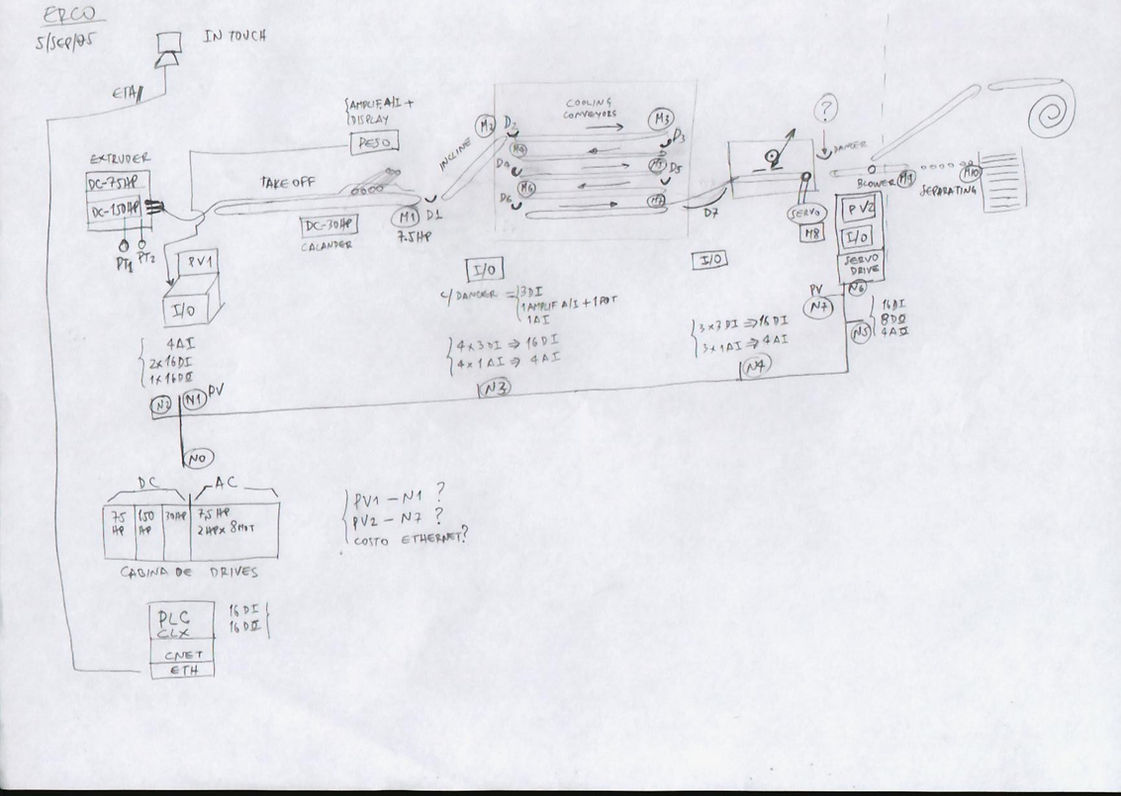 ERCO
5/SEP/05
IN TOUCH
ETH
EXTRUDER
DC-75HP
DC-150HP
PT1
PT2
PV1
I/O
4AI
2x16DI
1x16DO
N2
N1
PV
N0
TAKE OFF
AMPLIF. A/I +
DISPLAY
PESO
DC-30HP
CALANDER
M1
7.5HP
D1
INCLINE
M2
D2
COOLING
CONVEYORS
M3
D3
M4
D4
M5
D5
M6
D6
M7
D7
I/O
c/ DANCER = 3DI
1 AMPLIF A/I + 1 POT
1AI
4 x 3DI ⇒ 16DI
4 x 1AI ⇒ 4AI
N3
I/O
3x3DI ⇒ 16DI
3x1AI ⇒ 4AI
N4
?
DANCER
SERVO
M8
BLOWER
M9
M10
SEPARATING
PV2
I/O
SERVO
DRIVE
N6
PV
N7
N5
16DI
8DO
4AI
DC
AC
75
HP
150
HP
30HP
7,5 HP
2HP x 8MOT
CABINA DE DRIVES
PV1 - N1 ?
PV2 - N7 ?
COSTO ETHERNET?
PLC
CLX
16 DI
16 DO
CNET
ETH